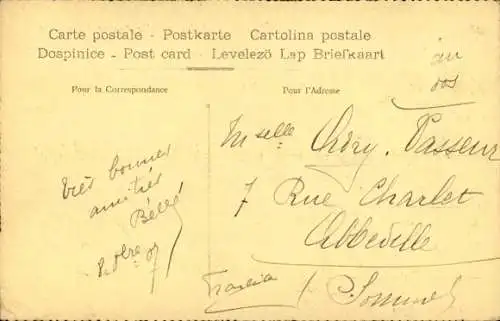 Carte postale - Postkarte - Cartolina postale
Dospinice - Post card - Levelezö Lap Briefkaart
Pour la Correspondance
Pour l'Adresse
très bonnes
amitiés
Bébé
8bre 07
Melle Passeur
7 Rue Charlet
Abbeville
(Somme)